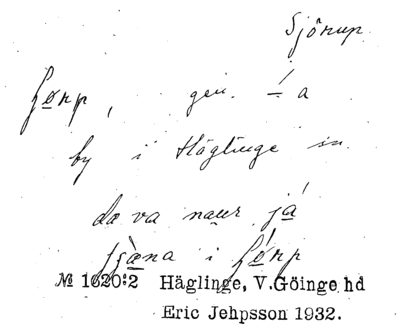 Sjörup
ʃørp, gen. -́ a
by i Häglinge sn.
dæ va naur já
tjæ̀na i ʃǿrp
№ 1620:2 Häglinge, V.Göinge hd
Eric Jehpsson 1932.